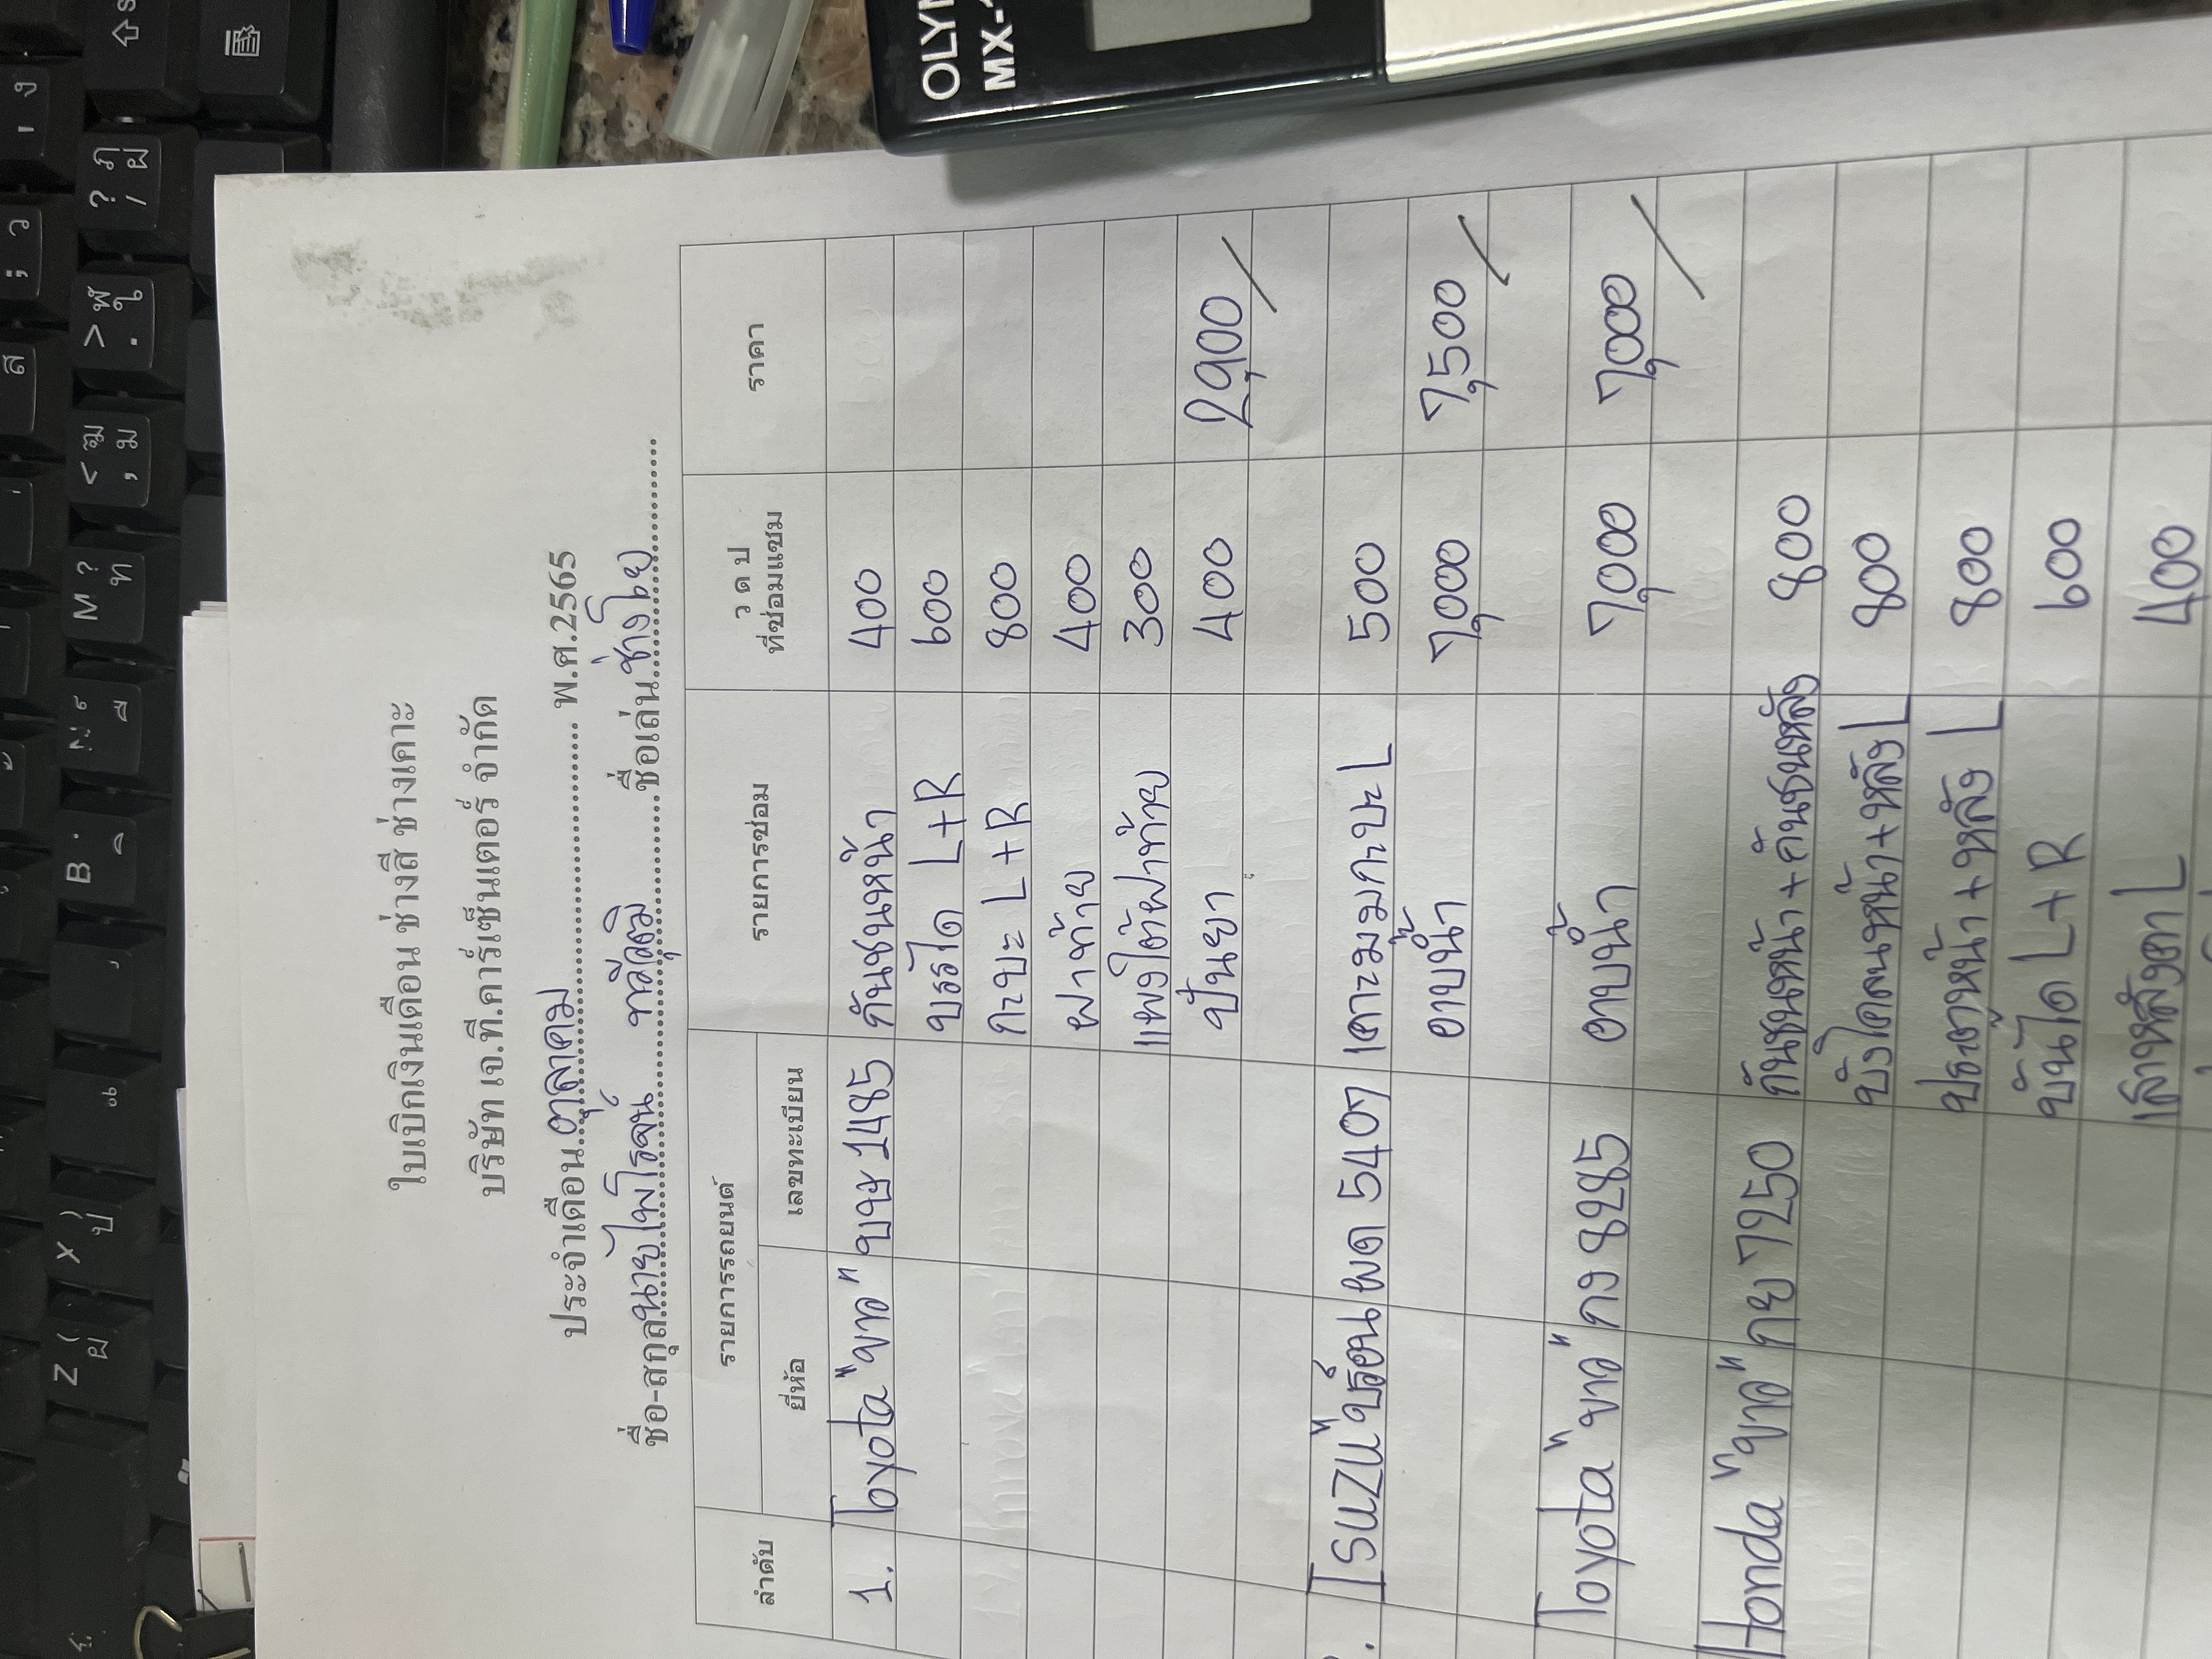 ใบเบิกเงินเดือน ช่างสี ช่างเคาะ
บริษัท เจ.ที.คาร์เซ็นเตอร์ จำกัด
ประจำเดือน ตุลาคม พ.ศ.2565
ชื่อ-สกุล นายไพโรจน์ ชื่อเล่น ช่างโย
ลำดับ รายการรถยนต์ รายการซ่อม ว ด ป ที่ซ่อมแซม ราคา
ยี่ห้อ เลขทะเบียน
1. Toyota "ขาว" 1485 กันชนหน้า 400
บรรได L+R 600
กะบะ L+R 800
ฝาท้าย 400
แผงใต้ฝาท้าย 300
ปั่นยา 400 2,900/
ISUZU "บร์อน" ผด 5407 เคาะมุมกะบะ L 500
อาบน้ำ 7,000 7,500/
Toyota "ขาว" กง 8285 อาบน้ำ 7,000 7,000/
Honda "ขาว" กย 7250 กันชนหน้า+กันชนหลัง 800
บังโคลนหน้า+หลัง L 800
ประตูหน้า+หลัง L 800
บันได L+R 600
เสาหลังคา L 400
OLYM
MX-